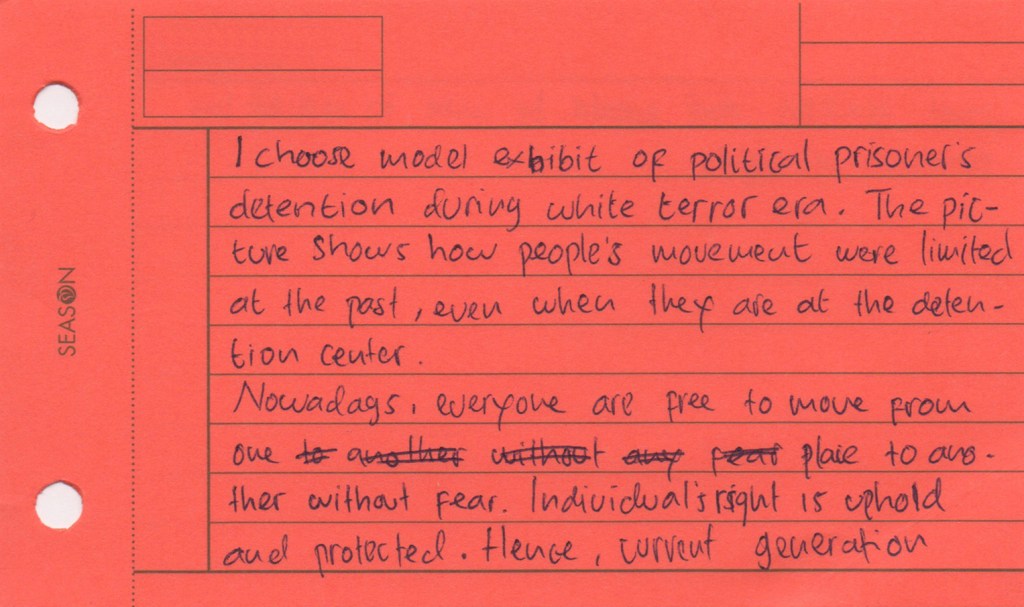 SEASON
I choose model exhibit of political prisoner's
detention during white terror era. The pic-
ture shows how people's movement were limited
at the past, even when they are at the deten-
tion center.
Nowadays, everyone are free to move from
one to another without any fear place to ano-
ther without fear. Individual's right is uphold
and protected. Hence, current generation